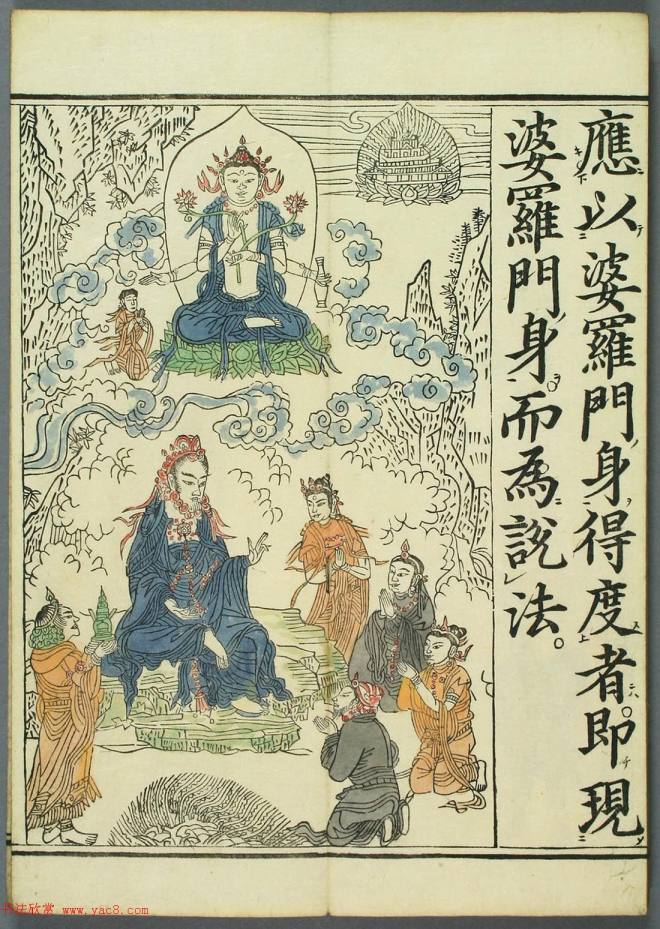 應以婆羅門身得度者。即現
婆羅門身而為說法。
书法欣赏 www.yac8.com